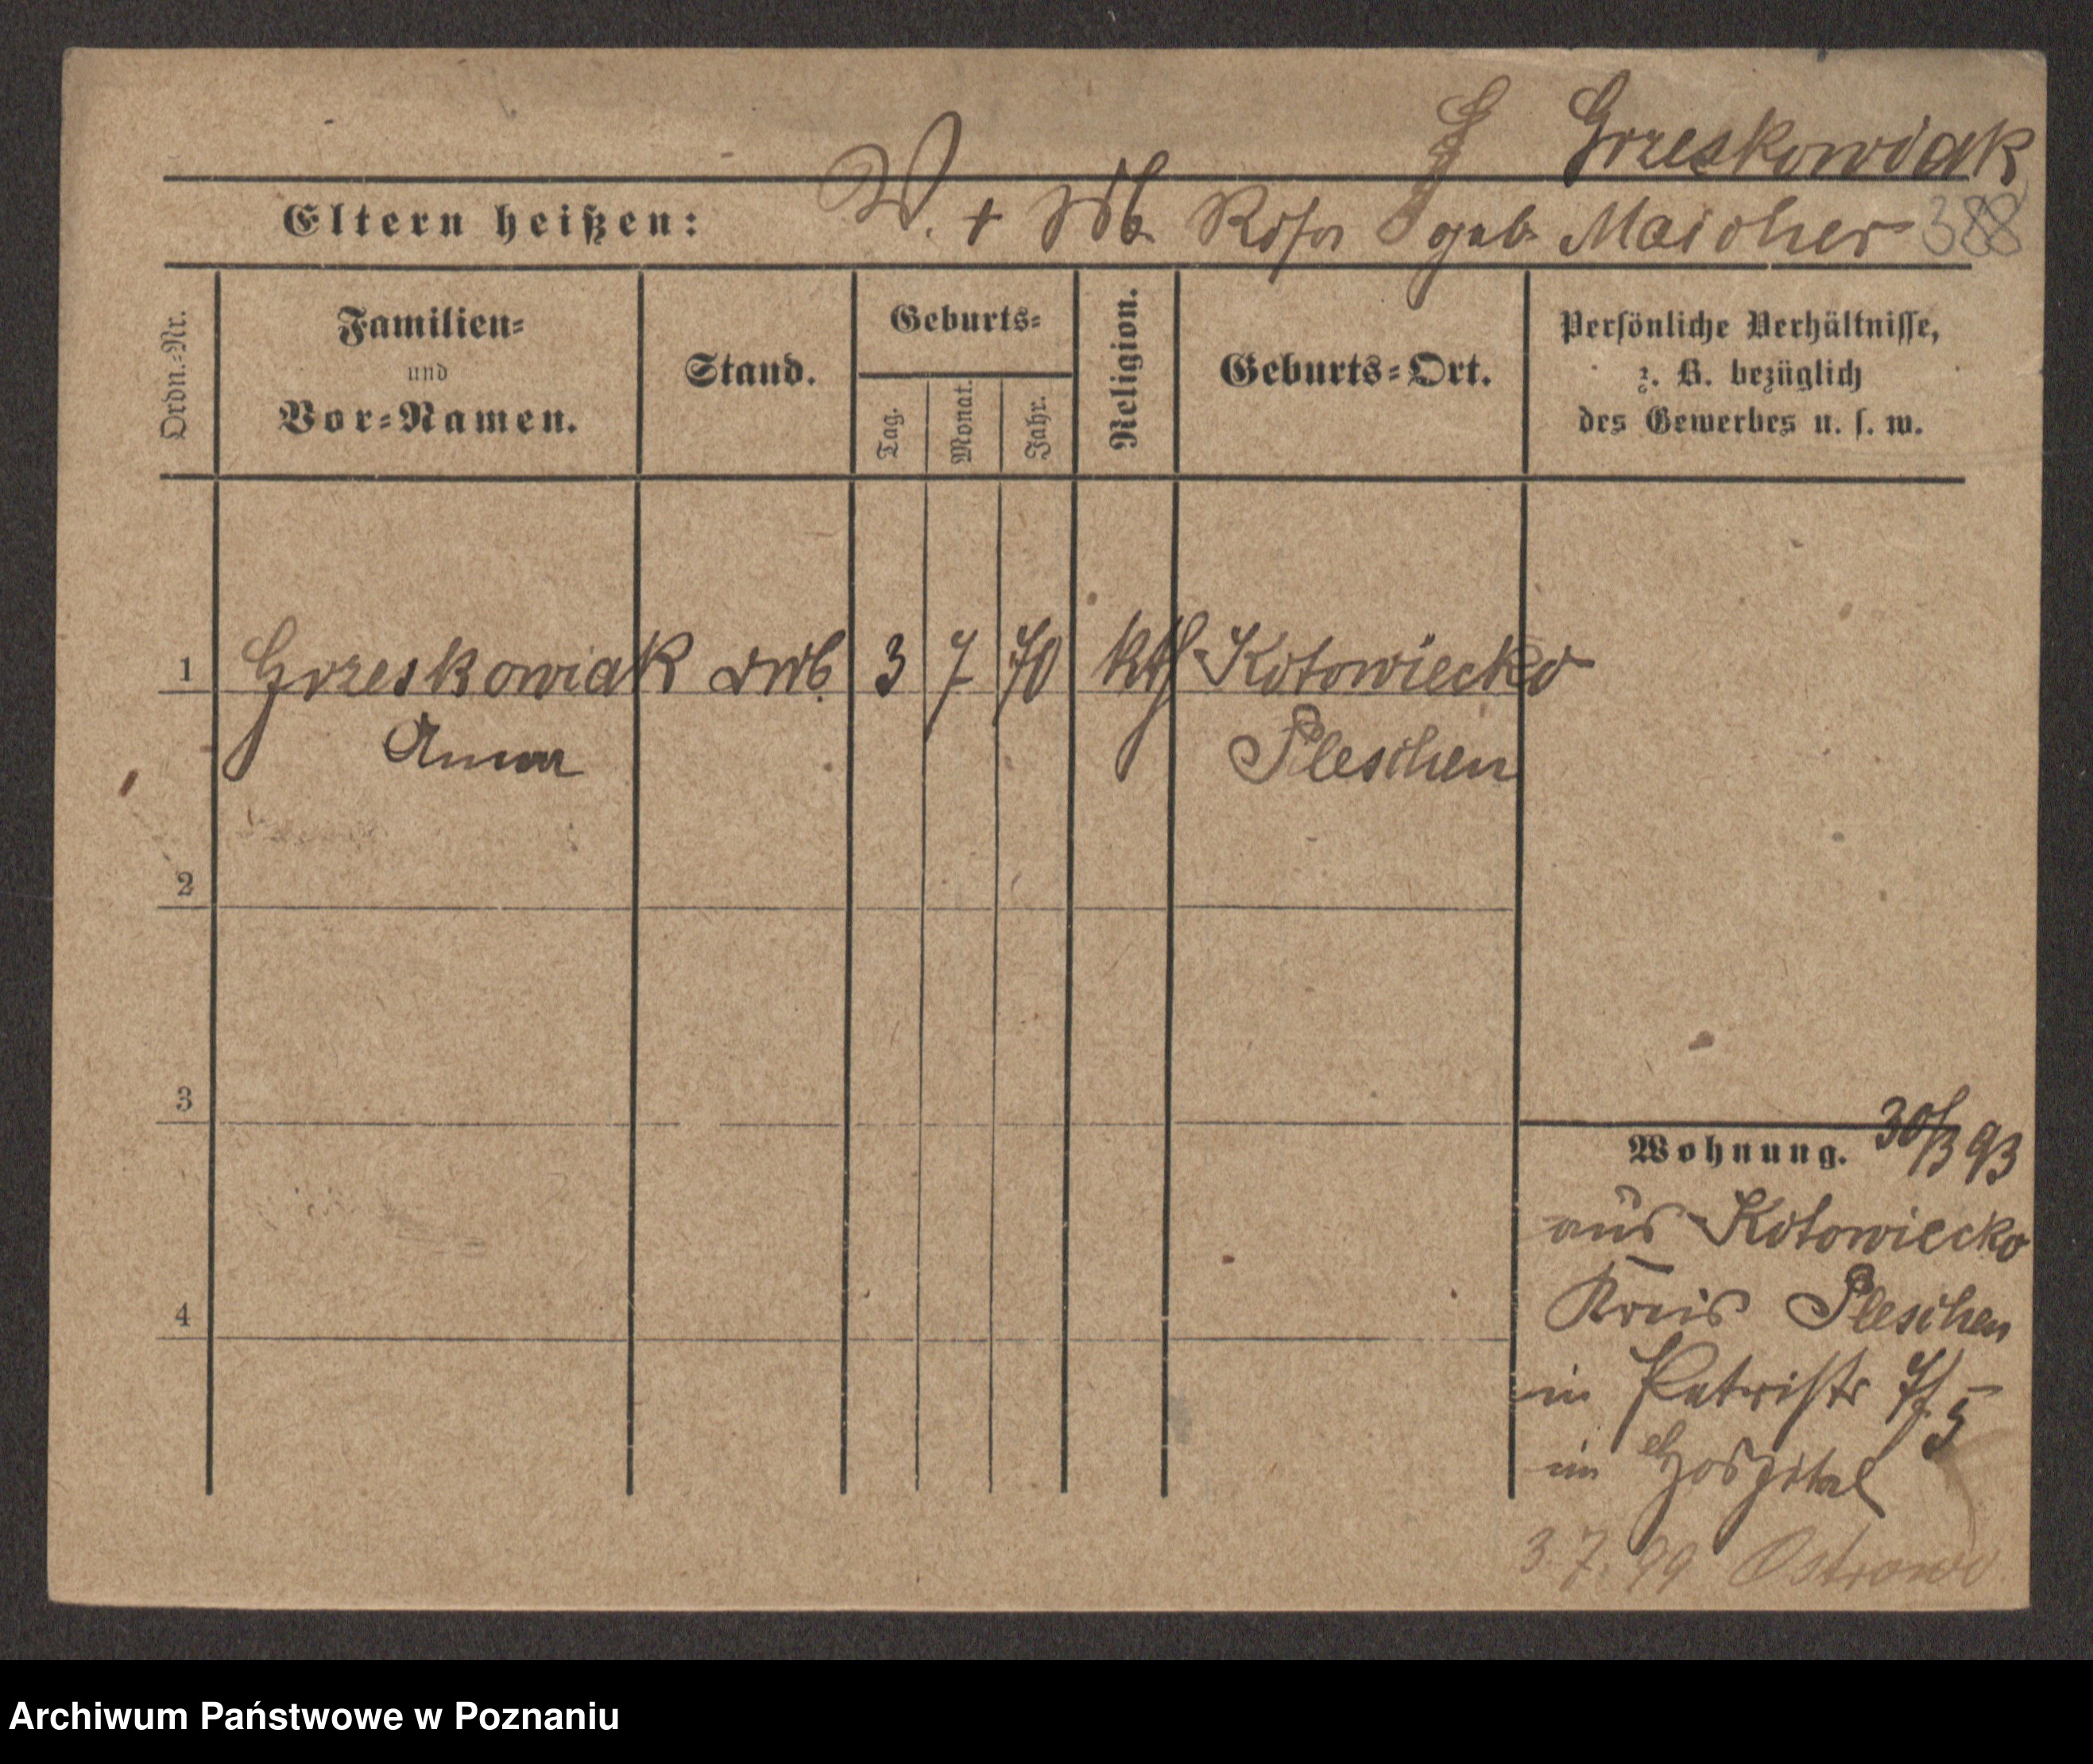 Grzeskowiak
Eltern heißen: W. + Wb. Rosa geb. Maicher 388
Ordn.-Nr.
Familien-
und
Vor-Namen.
Stand.
Geburts-
Tag.
Monat.
Jahr.
Religion.
Geburts-Ort.
Persönliche Verhältnisse,
z. B. bezüglich
des Gewerbes u. s. w.
1 Grzeskowiak 3 7 70 kth Kotowiecko
Anna Pleschen
2
3
4
Wohnung. 30/3 93
aus Kotowiecko
Kreis Pleschen
in Petristr 7/5
im Hospital
3.7.99 Ostrowo
Archiwum Państwowe w Poznaniu